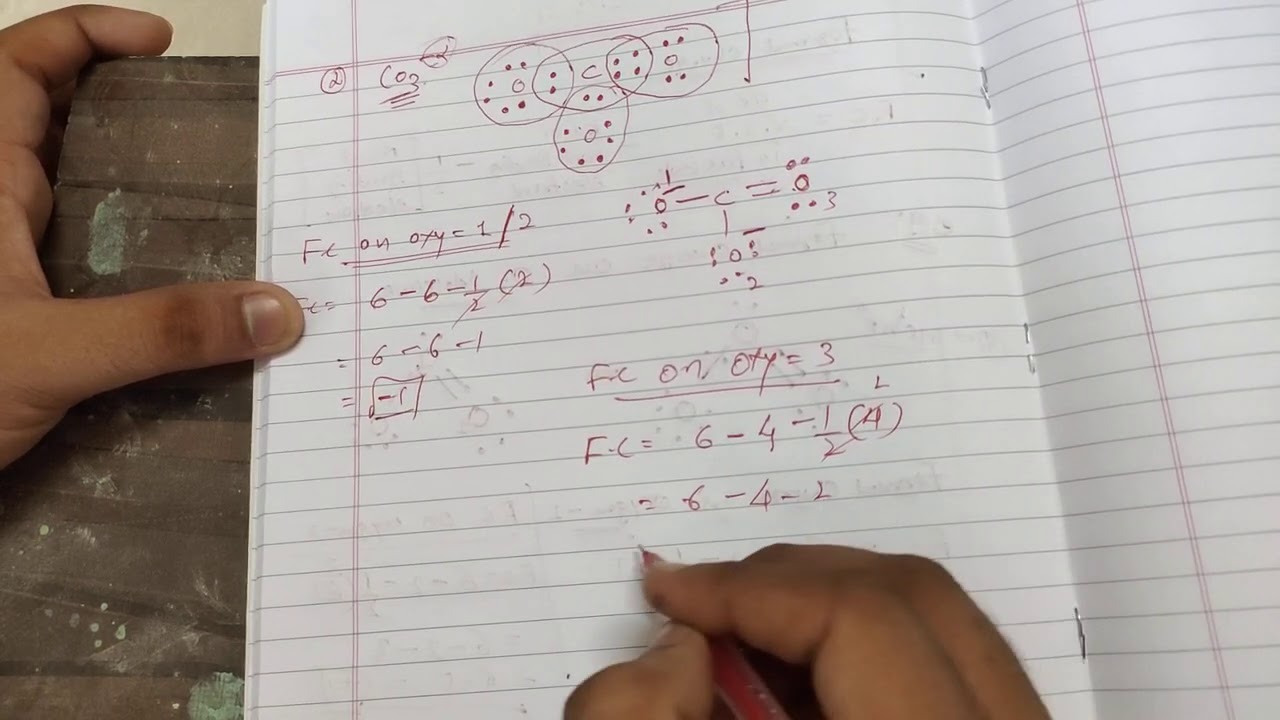 ② CO3 2-
O C O
O
1
O – C = O
3
O
2
FC on oxy = 1/2
FC = 6 – 6 – 1/2 (2)
= 6 – 6 – 1
= -1
FC on oxy = 3
F.C = 6 – 4 – 1/2 (4) 2
= 6 – 4 – 2